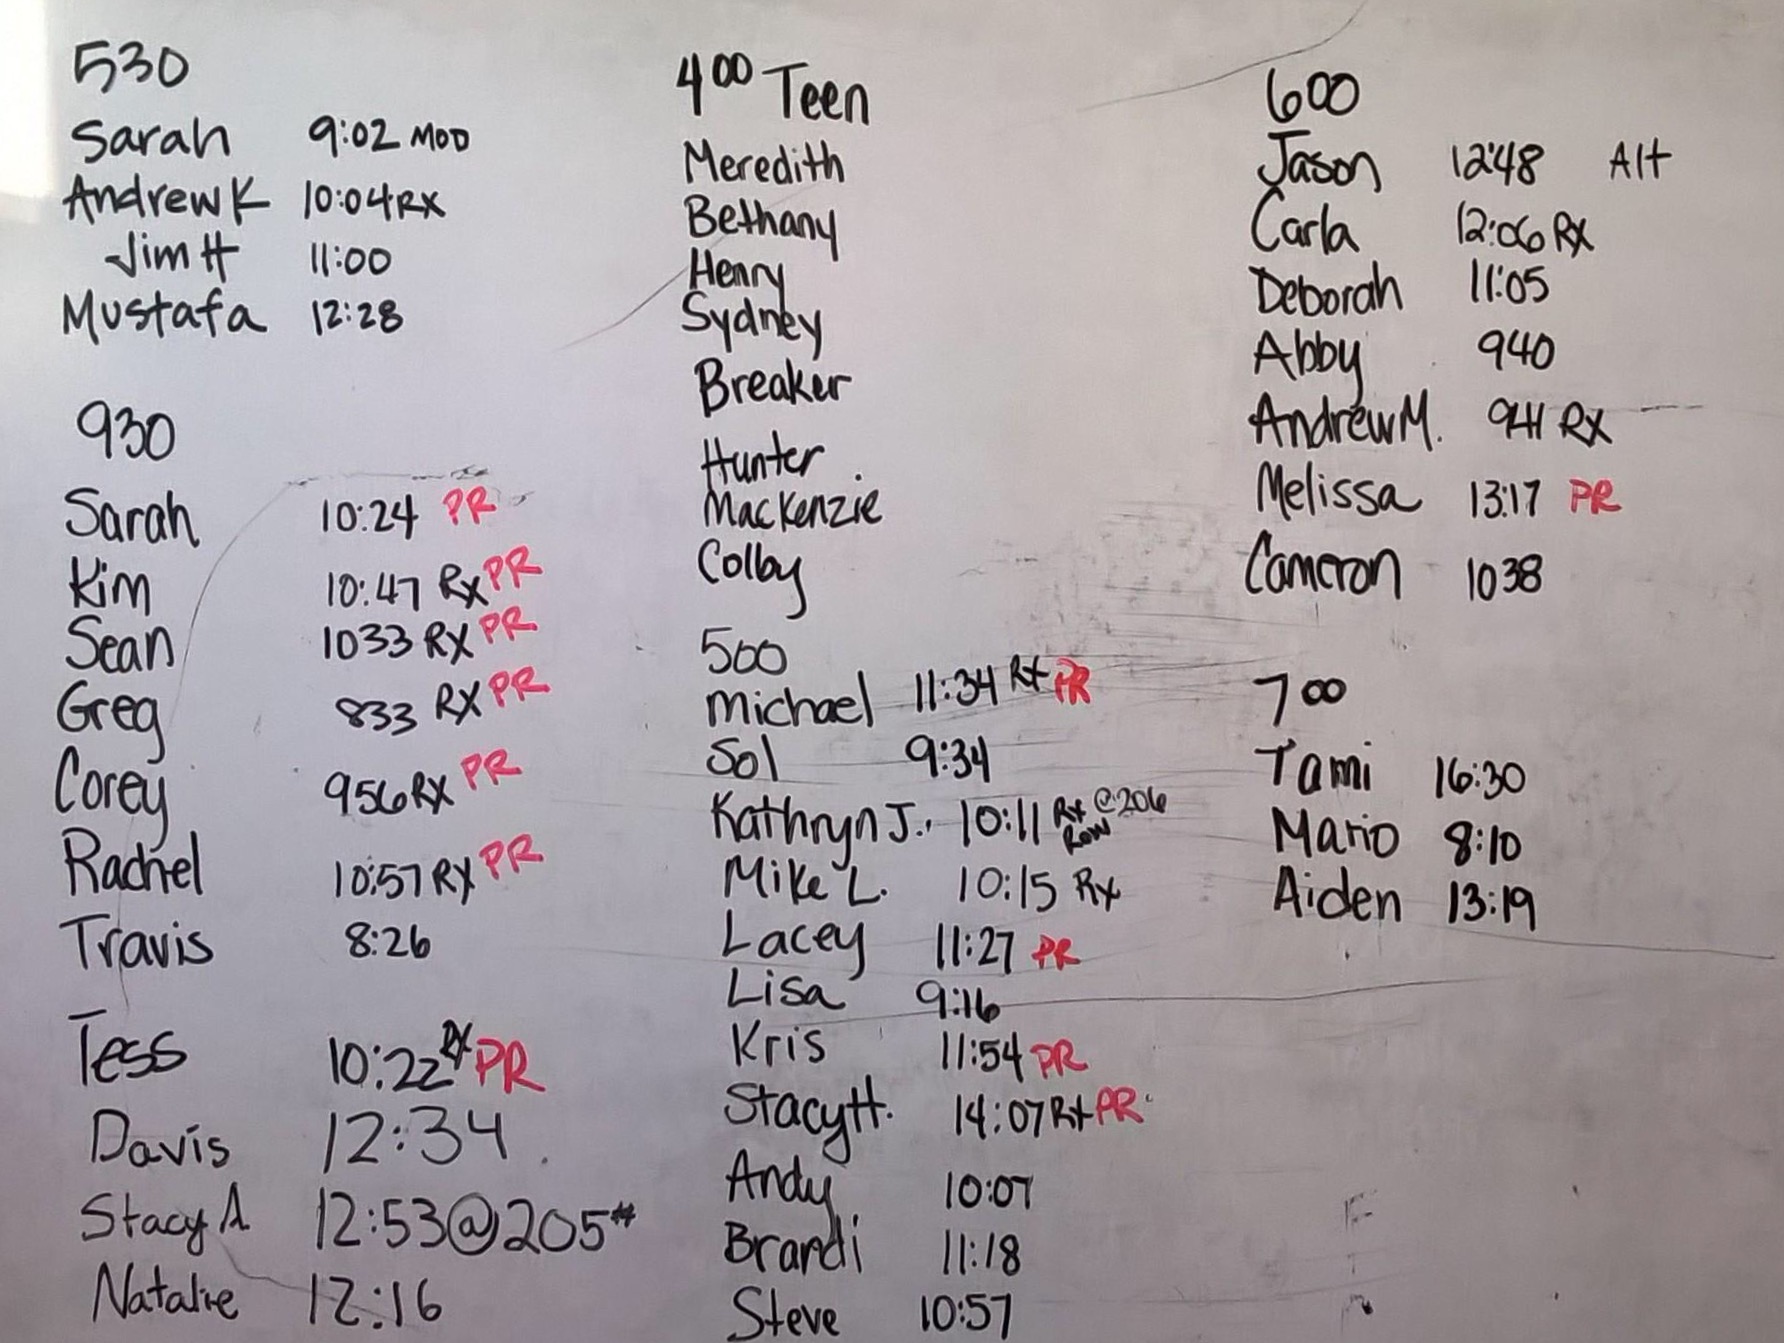 530
Sarah 9:02 MOD
Andrew K 10:04 RX
Jim H 11:00
Mustafa 12:28
930
Sarah 10:24 PR
Kim 10:47 Rx PR
Sean 1033 RX PR
Greg 833 RX PR
Corey 956 RX PR
Rachel 10:57 RX PR
Travis 8:26
Tess 10:22 RX PR
Davis 12:34
Stacy A 12:53@205#
Natalie 12:16
400 Teen
Meredith
Bethany
Henry
Sydney
Breaker
Hunter
Mackenzie
Colby
500
Michael 11:34 Rx PR
Sol 9:34
Kathryn J. 10:11 Rx @206
Row
Mike L. 10:15 Rx
Lacey 11:27 PR
Lisa 9:16
Kris 11:54 PR
Stacy H. 14:07 Rx PR
Andy 10:07
Brandi 11:18
Steve 10:57
600
Jason 12:48 Alt
Carla 12:06 RX
Deborah 11:05
Abby 940
Andrew M. 941 RX
Melissa 13:17 PR
Cameron 1038
700
Tami 16:30
Mario 8:10
Aiden 13:19